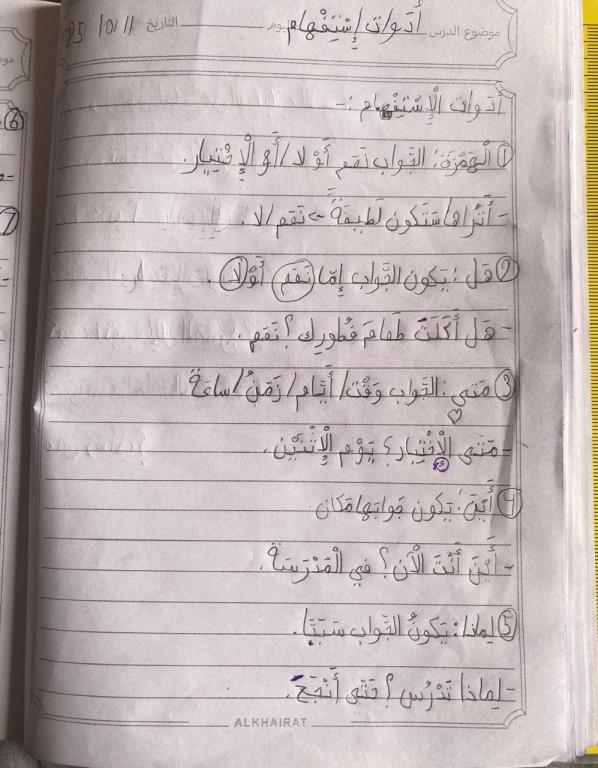 موضوع الدرس أدوات إِسْتِفْهام يوم التاريخ 11/10/
أدوات الْإِسْتِفْهام :-
① الْهَمْزَة: الجَواب نَعَم أَوْ لا/أَو الْإِخْتِيار.
- أَتُراها سَتَكون لَطيفَةً ~ نَعَم/لا.
② هَل: يَكون الجَواب إِمّا نَعَم أَوْ لا.
- هَل أَكَلَتَ طَعامَ فُطورِك؟ نَعَم.
③ مَتى: الجَواب وَقْت/أَيّام/زَمَنُ/ساعَة
- مَتى الْإِخْتِبار؟ يَوْم الْإِثْنَيْن.
④ أَيْنَ: يَكون جَوابها مَكان
- أَيْنَ أَنْتَ الْآن؟ في الْمَدْرَسَة.
⑤ لِماذا: يَكونُ الجَواب سَبَبًا.
- لِماذا تَدْرُس؟ حَتّى أَنْجَحَ.
ALKHAIRAT
⑥
⑦